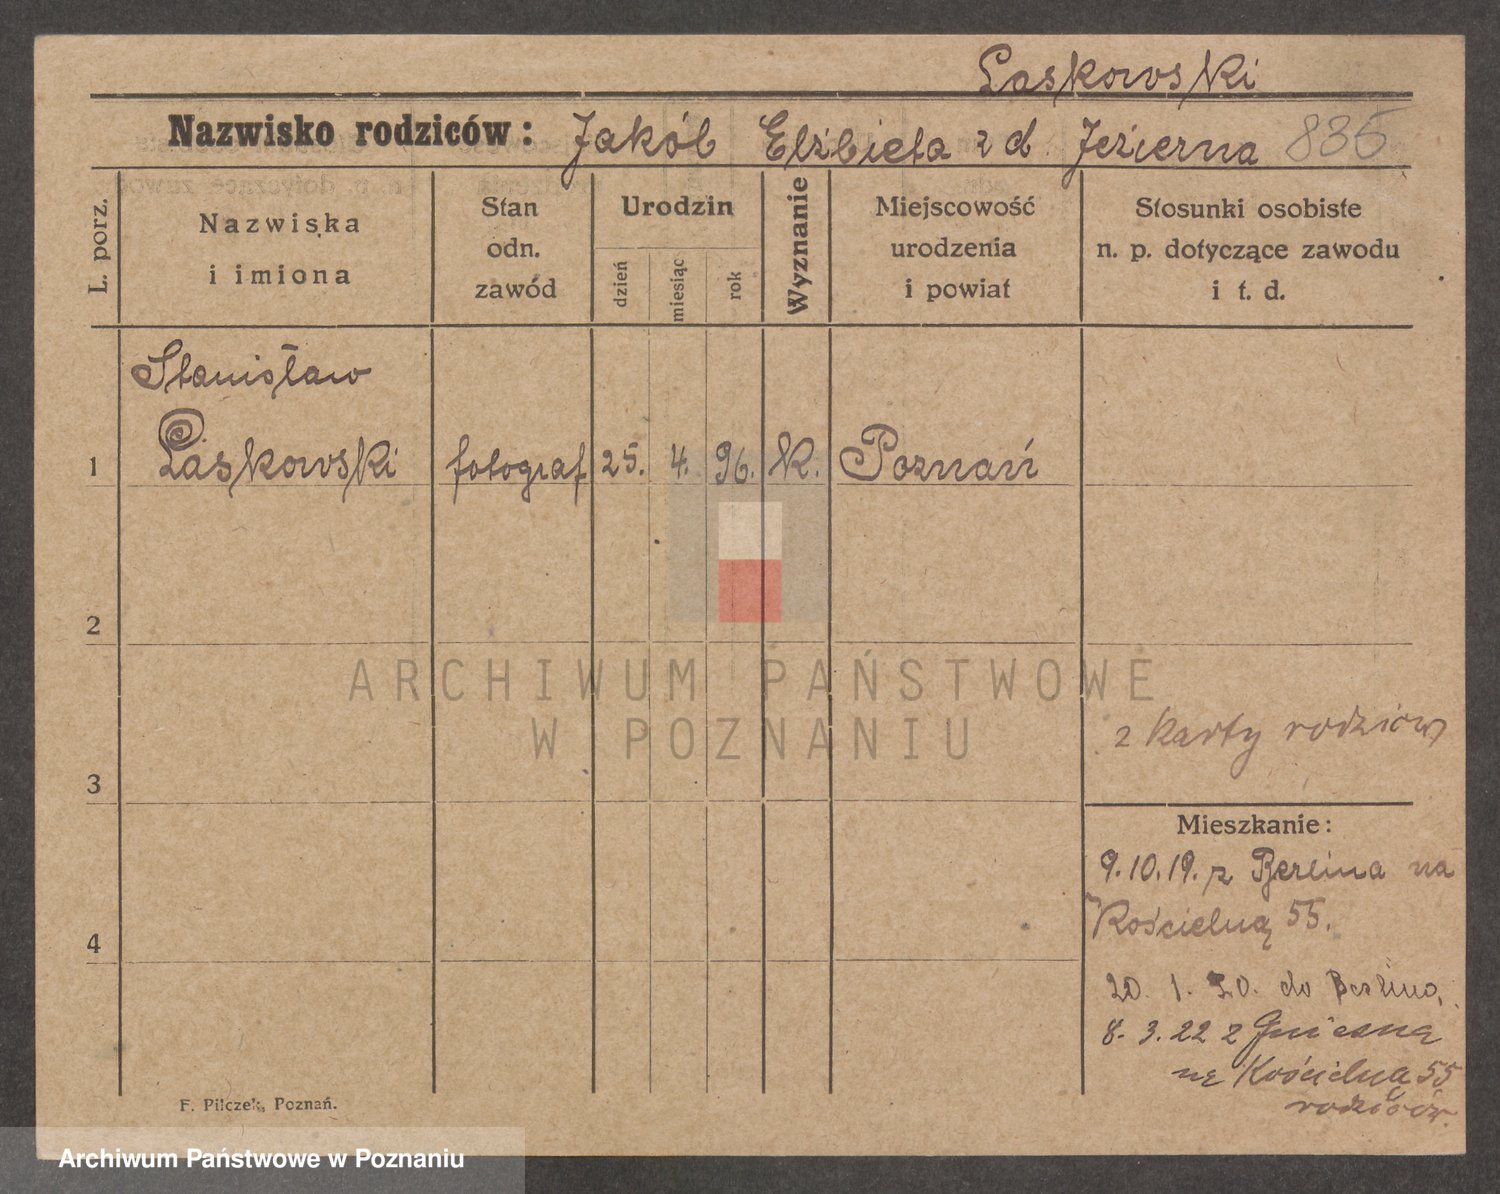 Laskowski
Nazwisko rodziców: Jakób Elżbieta z d. Jezierna 835
L. porz.
Nazwiska
i imiona
Stan
odn.
zawód
Urodzin
dzień
miesiąc
rok
Wyznanie
Miejscowość
urodzenia
i powiat
Stosunki osobiste
n. p. dotyczące zawodu
i t. d.
Stanisław
1 Laskowski fotograf 25. 4. 96. K. Poznań
2
3
4
z karty rodziców
Mieszkanie:
9.10.19. z Berlina na
Kościelną 55.
20. 1. 20. do Berlina,
8. 3. 22 z Gniezna
na Kościelną 55
rodziców.
F. Pilczek, Poznań.
ARCHIWUM PAŃSTWOWE
W POZNANIU
Archiwum Państwowe w Poznaniu